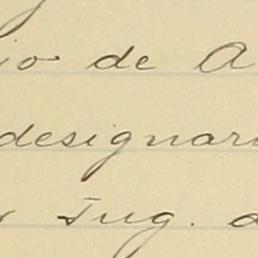 io de A
designar
r Jug. d